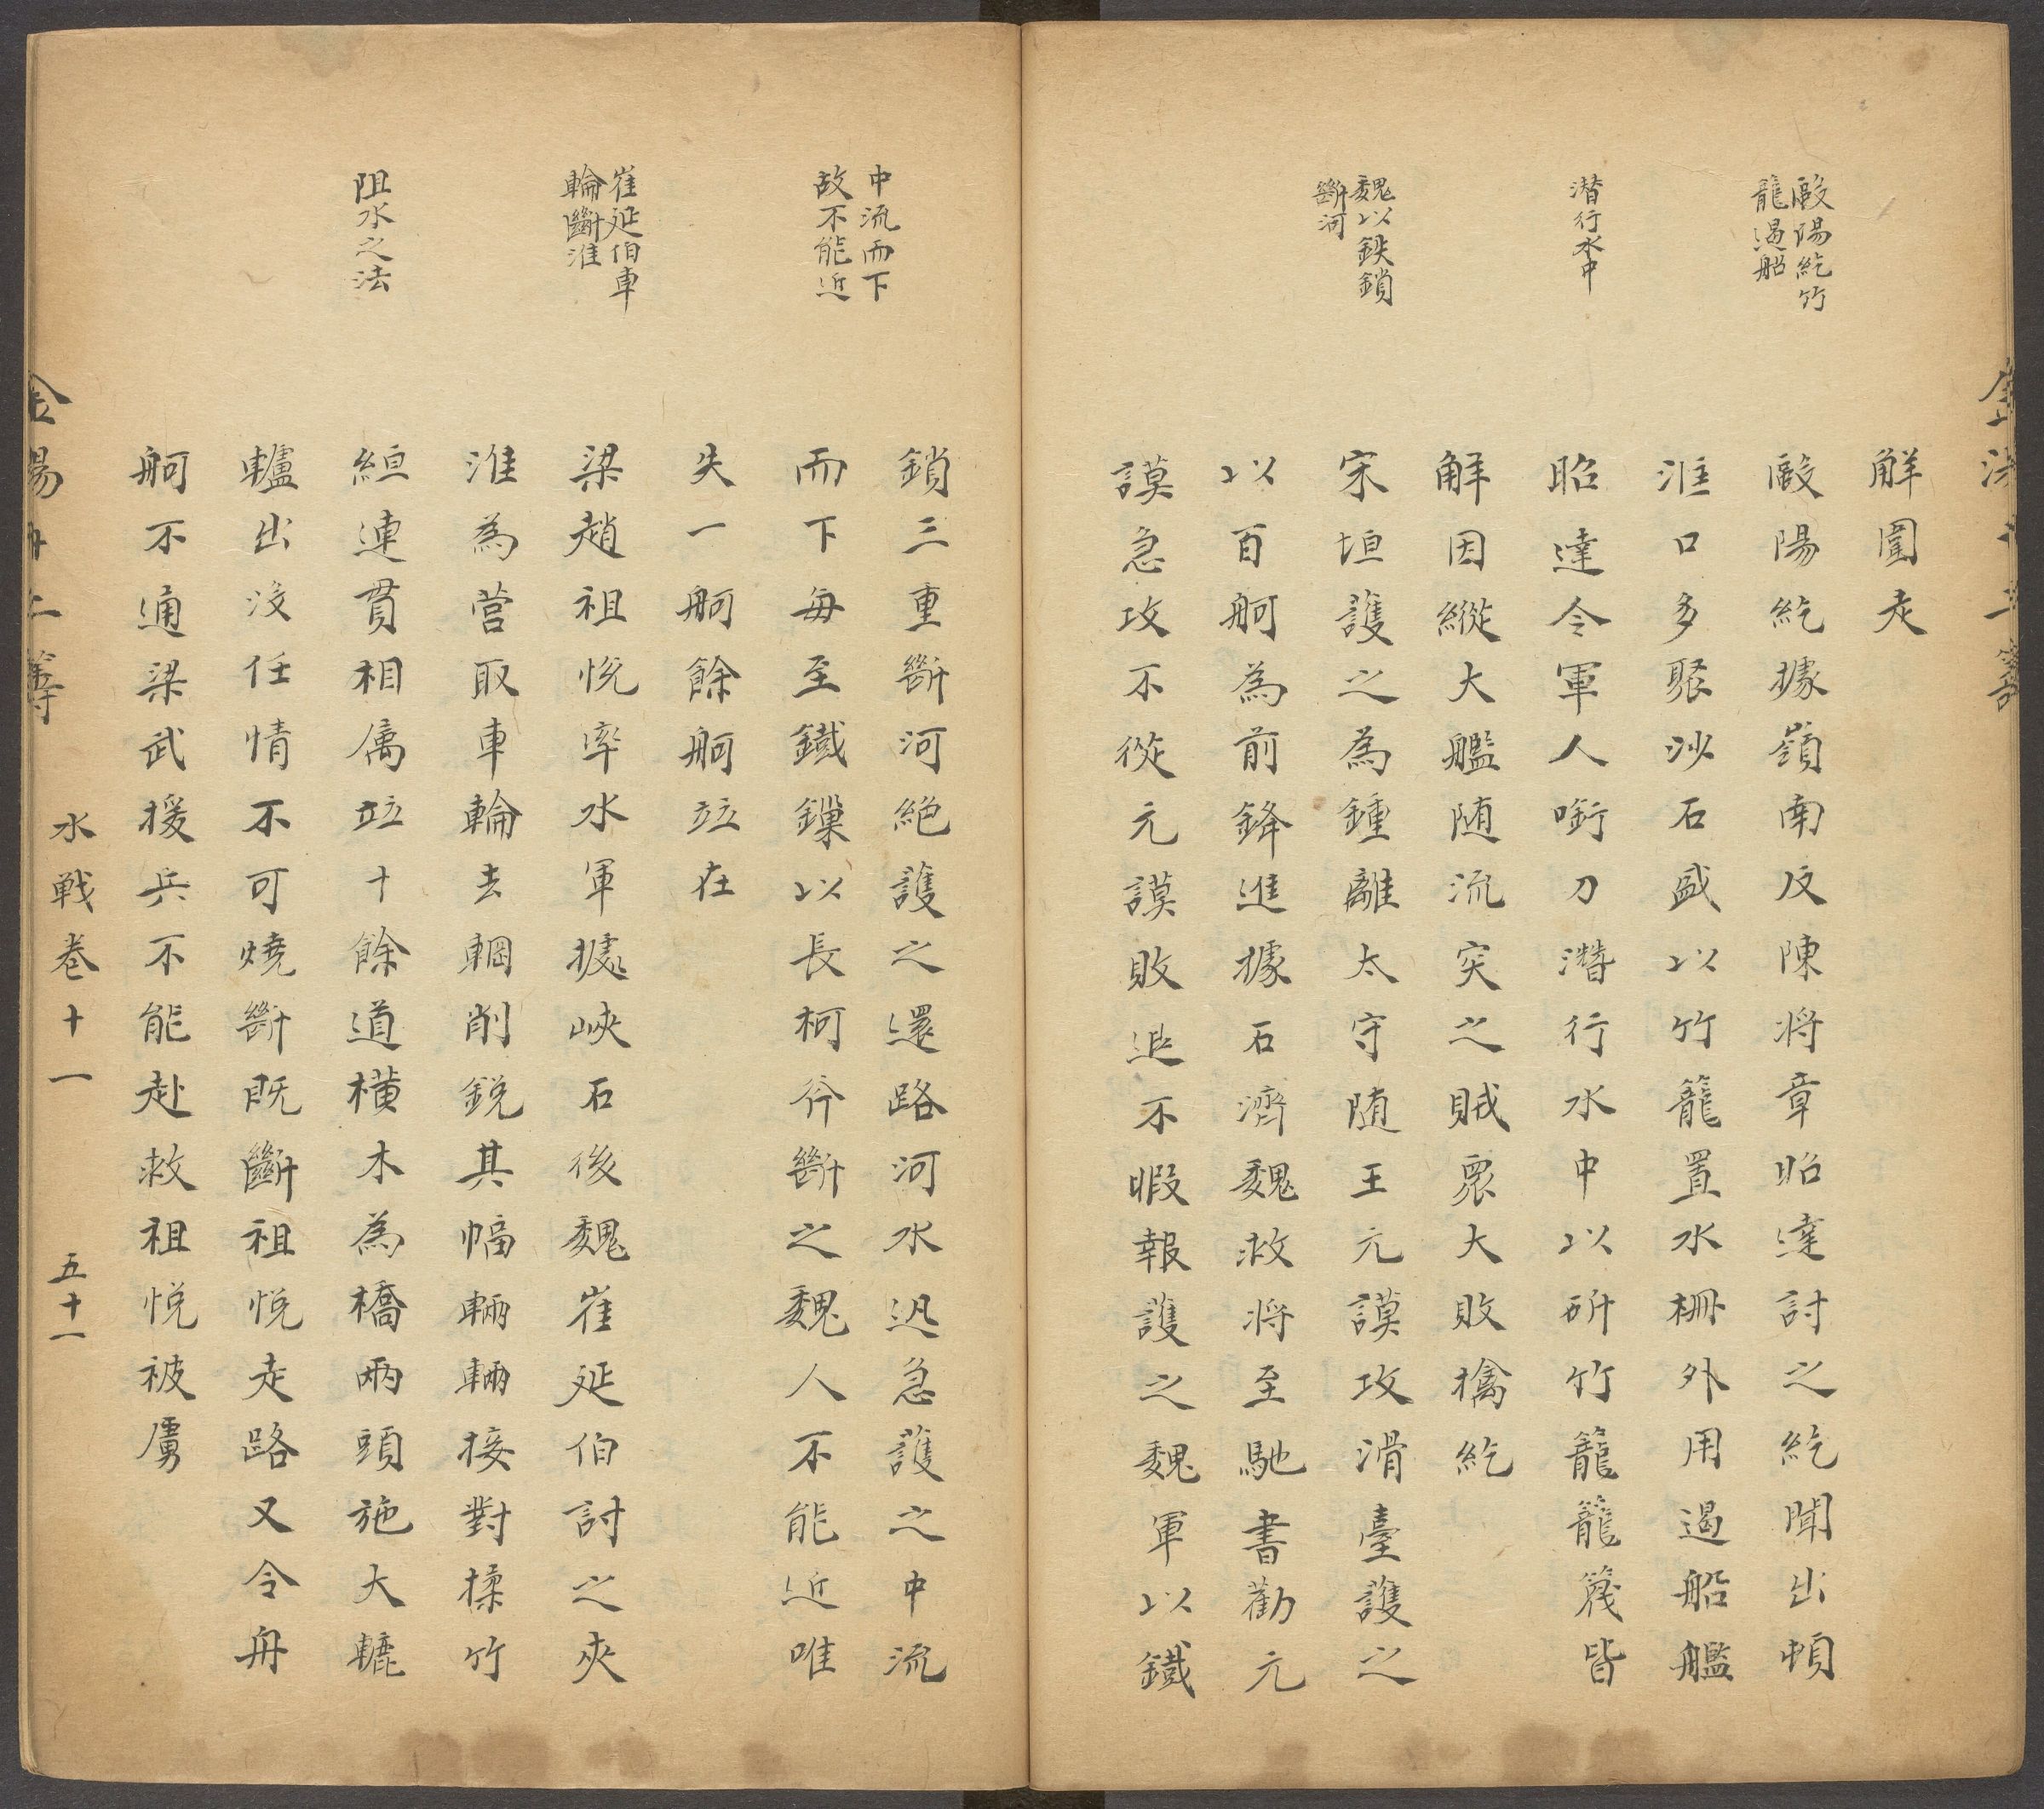 歐陽紇竹
籠遏船
潛行水中
魏以鉄鎖
斷河
解圍走
歐陽紇據嶺南反陳將章昭達討之紇聞出頓
淮口多聚沙石盛以竹籠置水柵外用遏船艦
昭達令軍人啣刀潛行水中以斫竹籠籠篾皆
解因縱大艦随流突之賊衆大敗擒紇
宋垣護之為鍾離太守随王元謨攻滑臺護之
以百舸為前鋒進據石濟魏救將至馳書勸元
謨急攻不從元謨敗退不暇報護之魏軍以鐵
中流而下
故不能近
崔延伯車
輪斷淮
阻水之法
鎖三重斷河絕護之還路河水迅急護之中流
而下每至鐵鏁以長柯斧斷之魏人不能近唯
失一舸餘舸竝在
梁趙祖悦率水軍據峽石後魏崔延伯討之夾
淮為營取車輪去輞削鋭其幅輛輛接對揉竹
絙連貫相属竝十餘道橫木為橋兩頭施大轆
轤出没任情不可燒斷既斷祖悦走路又令舟
舸不通梁武援兵不能赴救祖悦被虜
水戰卷十一
五十一